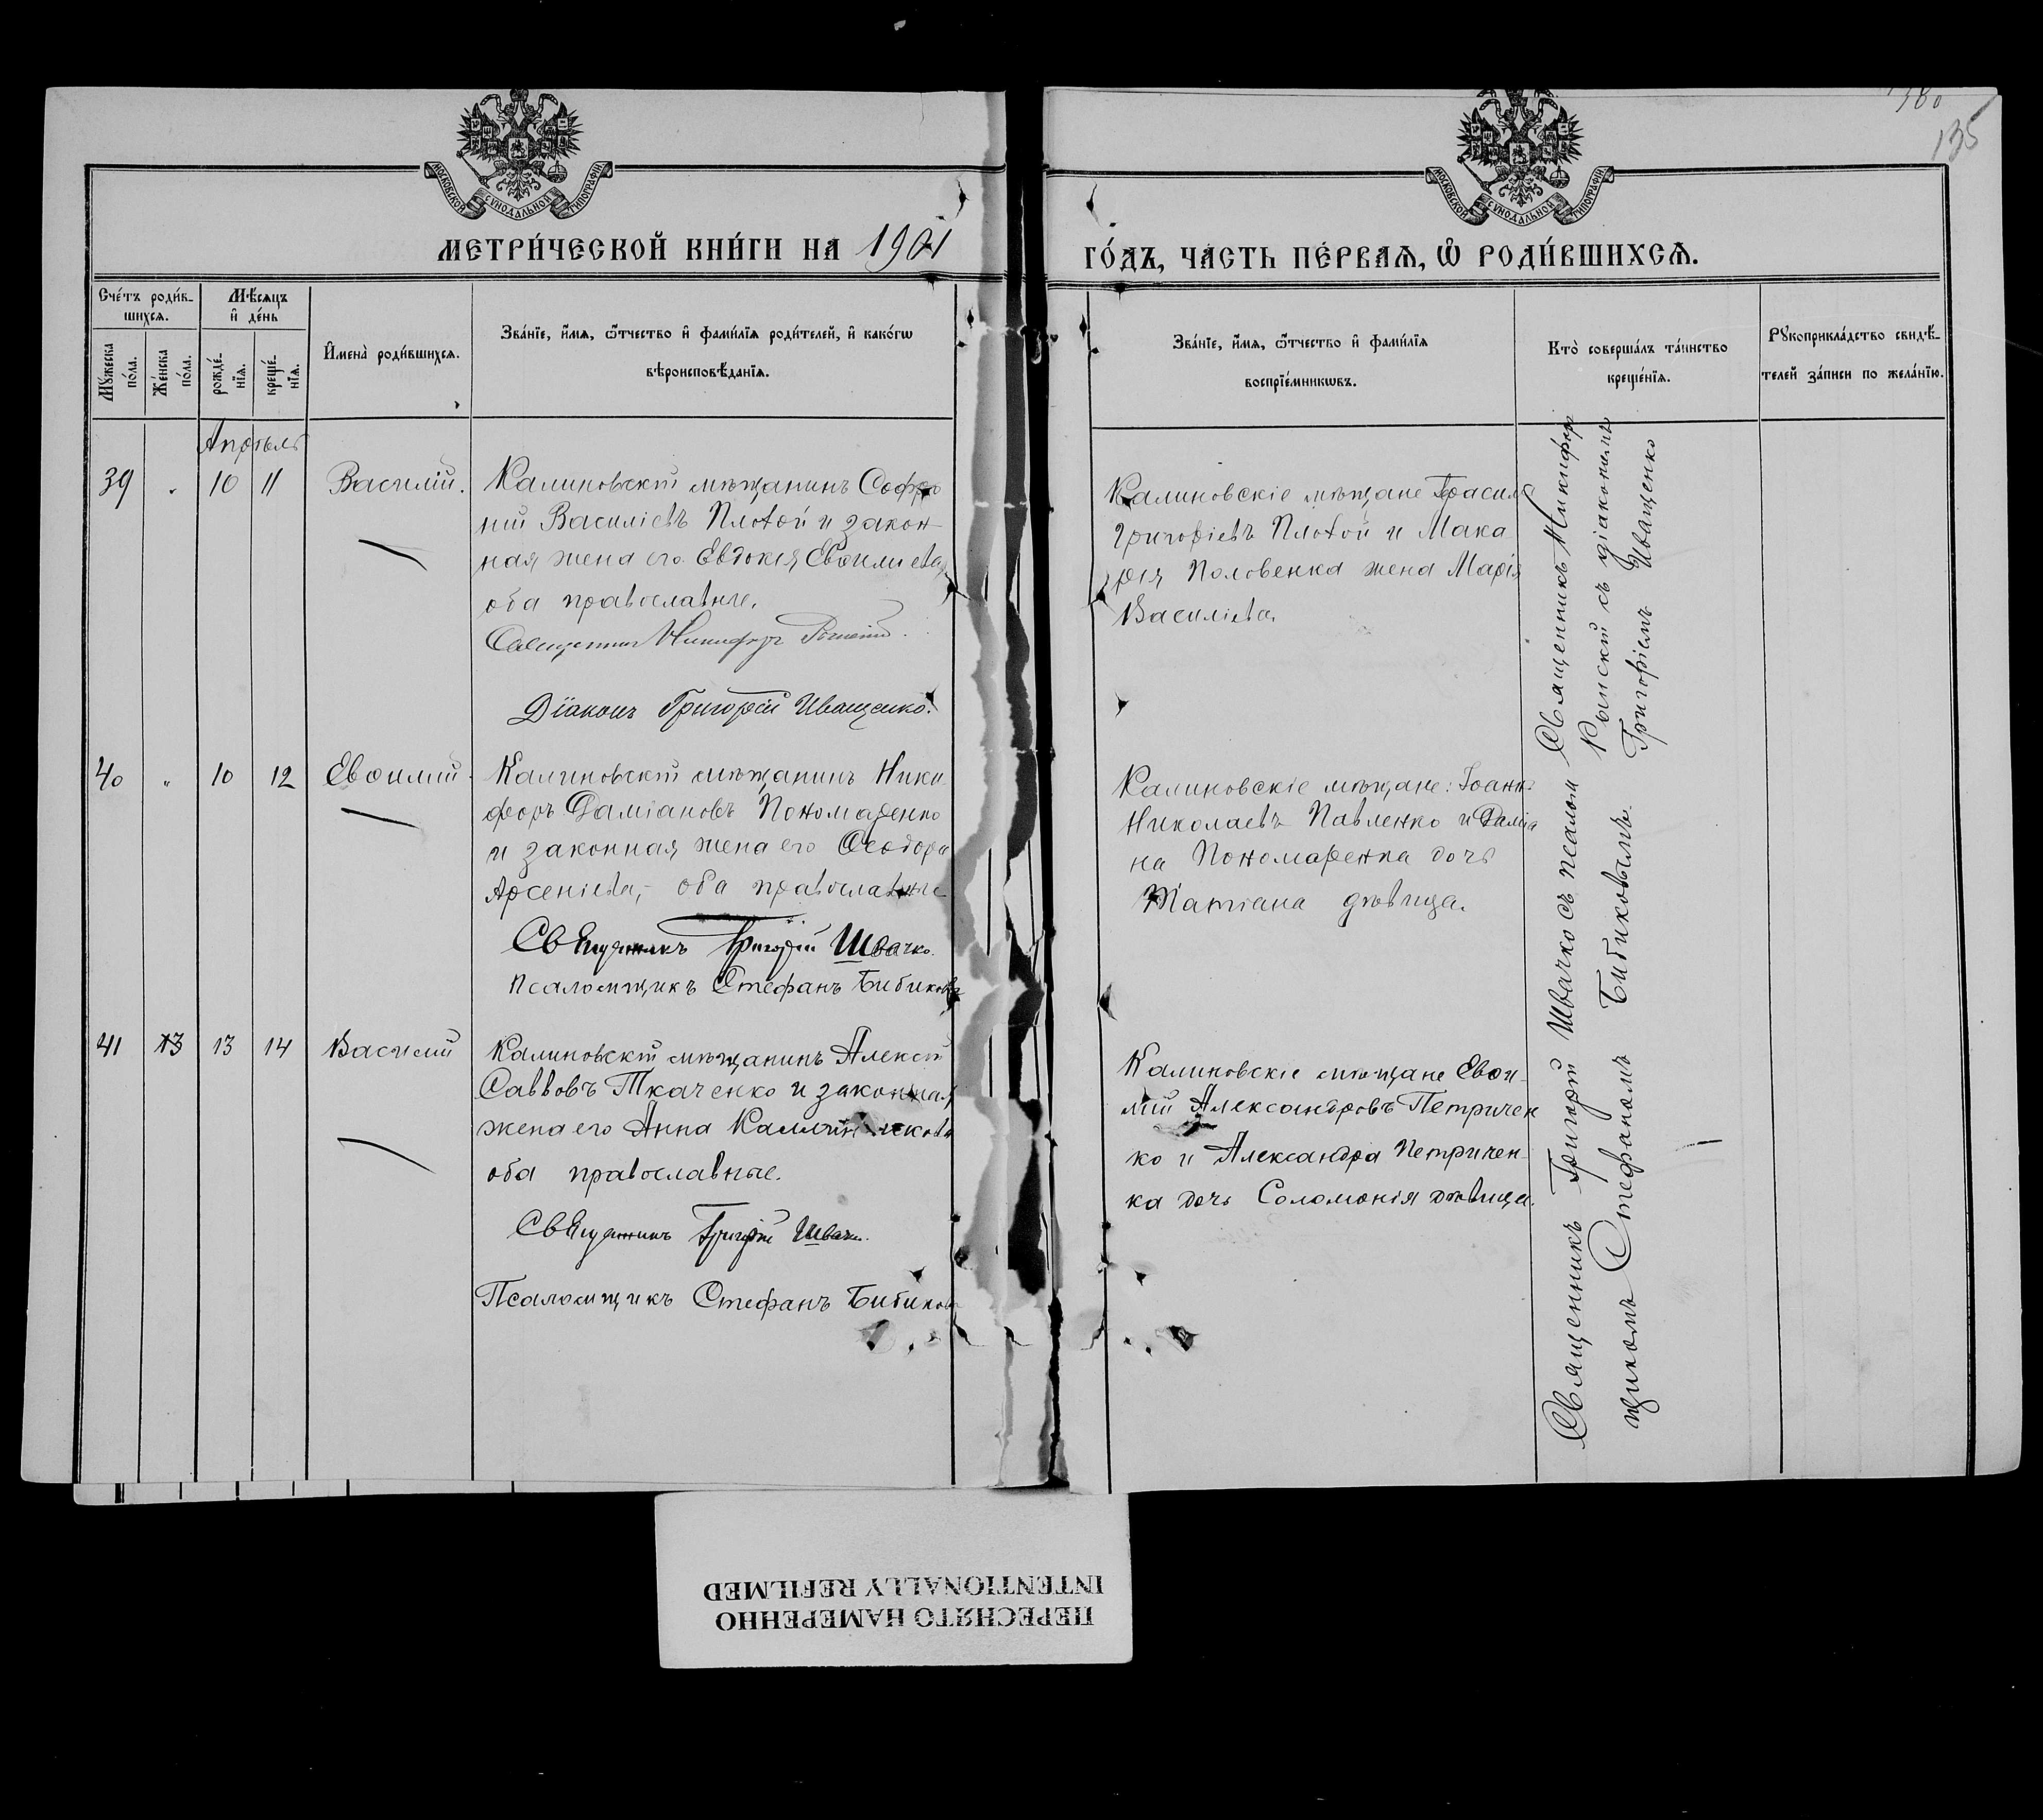 380
135
МОСКОВСКОЙ СУНОДАЛЬНОЙ ТИПОГРАФІИ
МОСКОВСКОЙ СУНОДАЛЬНОЙ ТИПОГРАФІИ
МЕТРИ́ЧЕСКОЙ КНИ́ГИ НА 1901
ГО́ДЪ, ЧАСТЬ ПЕ́РВАѦ, Ѽ РОДИ́ВШИХСѦ.
Сче́тъ роди́в-
шихсѧ.
Мꙋ́жеска
по́ла.
Же́нска
по́ла.
Мѣ́сѧцъ
и҆ де́нь
рожде́-
нїѧ.
креще́-
нїѧ.
И҆мена̀ роди́вшихсѧ.
Зва́нїе, и҆́мѧ, ѻ҆́тчество и҆ фами́лїѧ роди́телей, и҆ како́гѡ
вѣроисповѣ́данїѧ.
Зва́нїе, и҆́мѧ, ѻ҆́тчество и҆ фами́лїѧ
воспрїе́мникѡвъ.
Кто̀ соверша́лъ та́инство
креще́нїѧ.
Рꙋкоприкла́дство свидѣ́-
телей за́писи по жела́нїю.
Апрѣль
39 " 10 11 Василій.
Калиновскій мѣщанинъ Софро
ній Василіевъ Плохой и закон-
ная жена его Евдокія Евѳиміева,
оба православные.
Священникъ Никифоръ
Діаконъ Григорій Иващенко.
Калиновскіе мѣщане
Григоріевъ Плохой и Мака
рія Половенка жена Марія
Василіева.
Священникъ Никифор
Рымскій съ діакономъ
Григоріемъ Иващенко
40 " 10 12 Евѳимій
Калиновскій мѣщанинъ Ники
форъ Даміановъ Пономаренко
и законная жена его Ѳеодора
Арсеніева,- оба православные
Священникъ Григорій Швачко.
Псаломщикъ Стефанъ Бибиковъ
Калиновскіе мѣщане: Іоаннъ
Николаевъ Павленко и Даміа
на Пономаренка дочь
Татіана дѣвица.
41 13 13 14 Василій
Калиновскій мѣщанинъ Алексій
Савовъ Ткаченко и законная
жена его Анна
оба православные.
Священникъ Григорій Швачко.
Псаломщикъ Стефанъ Бибиковъ
Калиновскіе мѣщане Евѳи-
мій Александровъ Петричен
ко и Александра Петричен-
ка дочь Соломонія дѣвица.
Священникъ Григорій Швачко съ псалом
щикомъ Стефаномъ Бибиковымъ.
ПЕРЕСНЯТО НАМЕРЕННО
INTENTIONALLY REFILMED